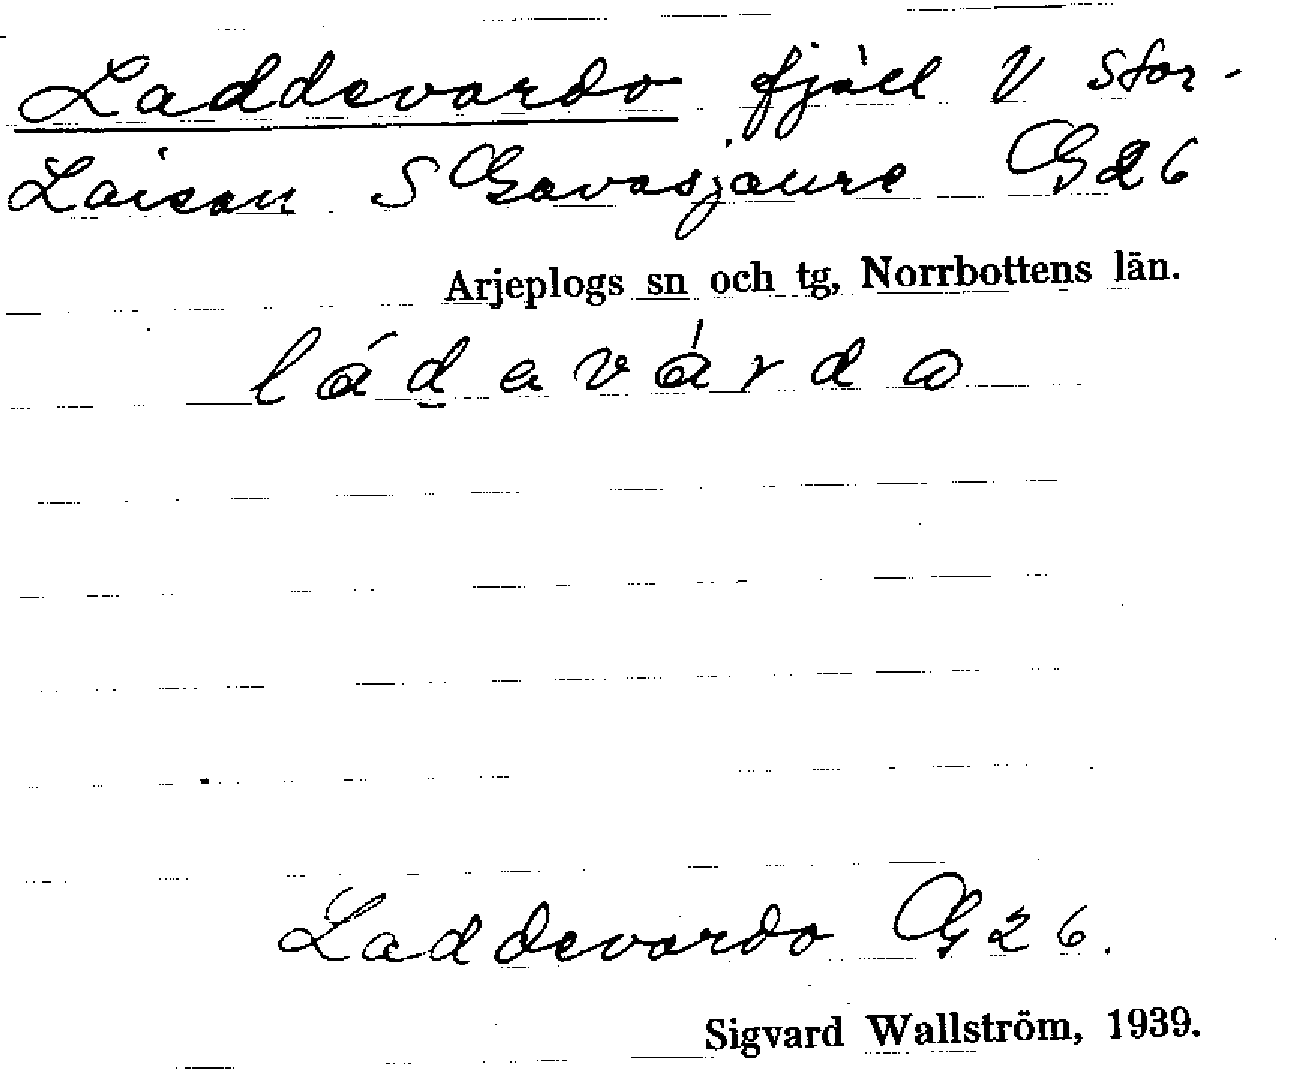 Laddevardo fjäll V Stor-
Laisan S Gavasjaure G26
Arjeplogs sn och tg, Norrbottens län.
láḏavárdo
Laddevardo G26.
Sigvard Wallström, 1939.